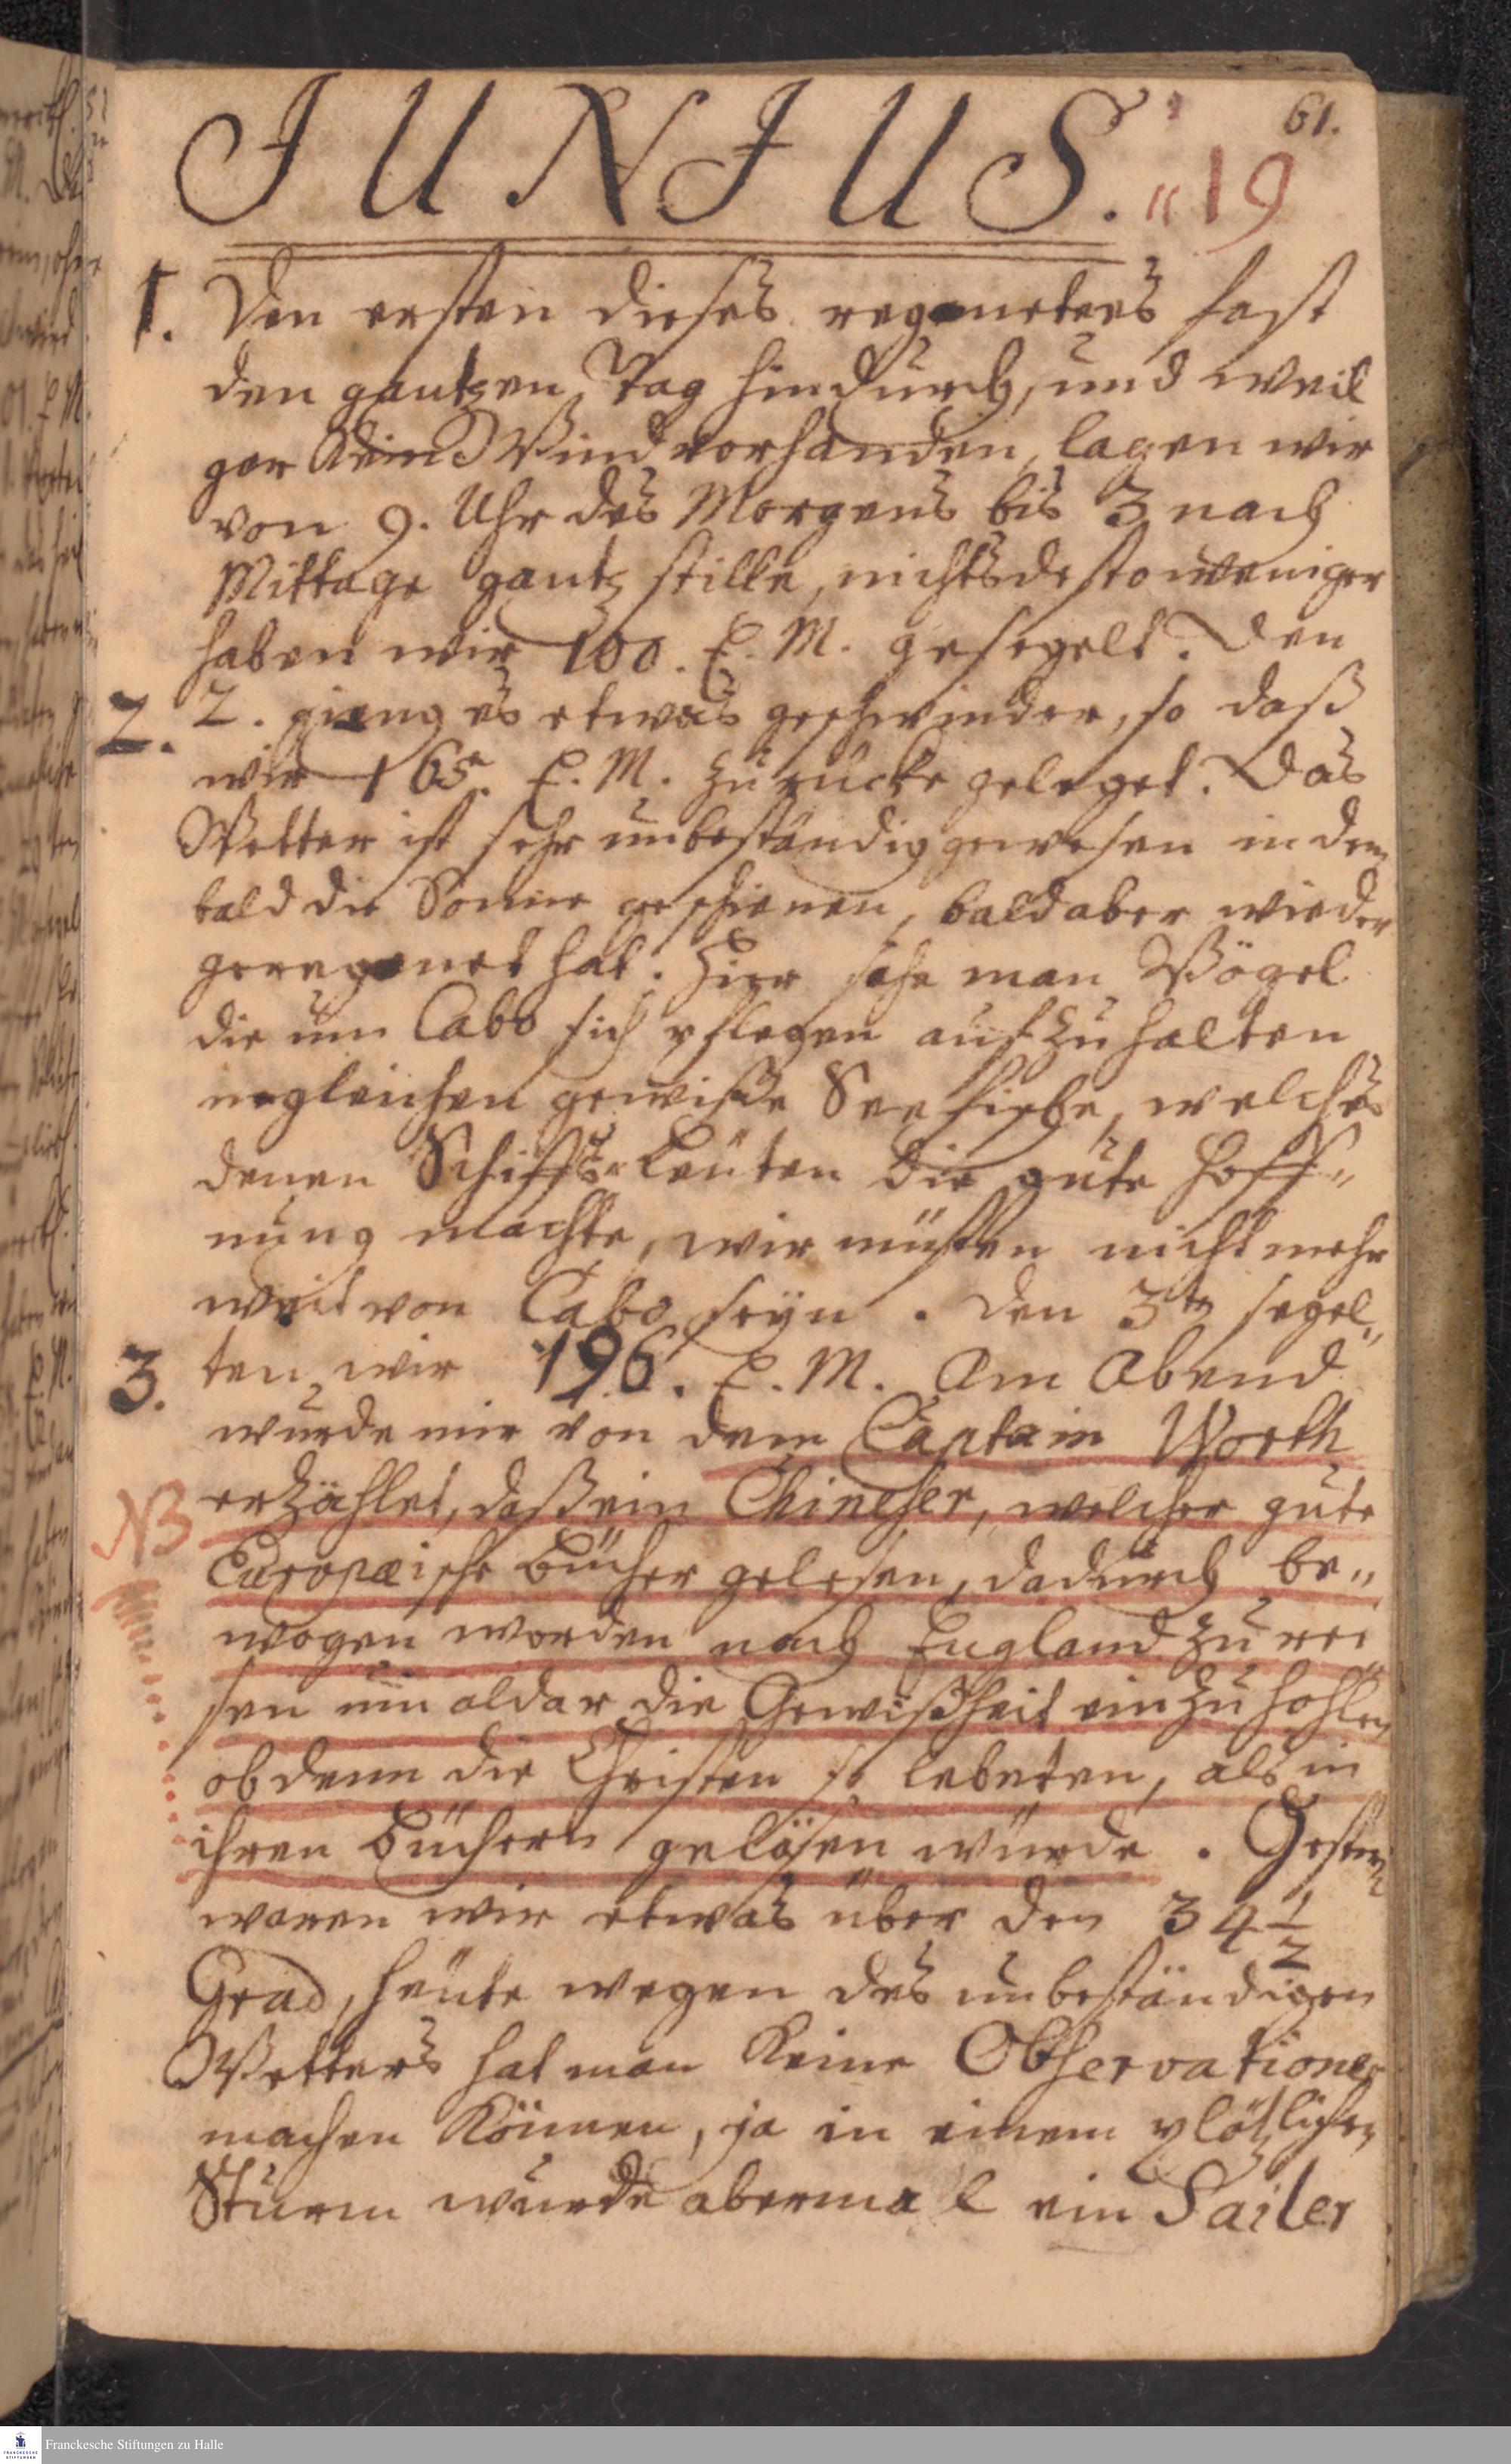 61.
JUNJUS. "19
1. Den ersten dieses regnetees fast
den gantzen Tag hindurch, und weil
gar kein Wind vorhanden, lagen wir
von 9. Uhr des Morgens bis 3 nach
Mittage gantz stille, nichtsdestoweniger
haben wir 100. E. M. gesegelt. Den
2. 2. gieng es etwas geschwinder, so daß
wir 165. E. M. zurücke geleget. Das
Wetter ist sehr unbeständig gewesen in dem
bald die Sonne geschienen, bald aber wieder
geregenet hat. Hier sahe man Vögel
die um Cabo sich pflegen aufzuhalten
ingleichen gewiße See fische, welches
denen Schiffs-Leuten die gute Hoff-
nung machte, wir müsten nicht mehr
weit von Cabo seyn. Den 3ten segel-
3. ten wir 196. E. M. Am Abend
wurde mir von dem Captain Worth
NB erzählet, daß ein Chineser, welcher gute
Europæische Bücher gelesen, dadurch be-
wogen worden nach England zu rei
sen um aldar die Gewißheit einzuhohlen
ob denn die Christen so lebeten, als in
ihren Büchern gelesen würde. Gestern
waren wir etwas über den 34 1/2
Grad, heute wegen des unbeständigen
Wetters hat man keine Observationen
machen können, ja in einem plötzlichen
Sturm wurde abermal ein Sailer
Franckesche Stiftungen zu Halle